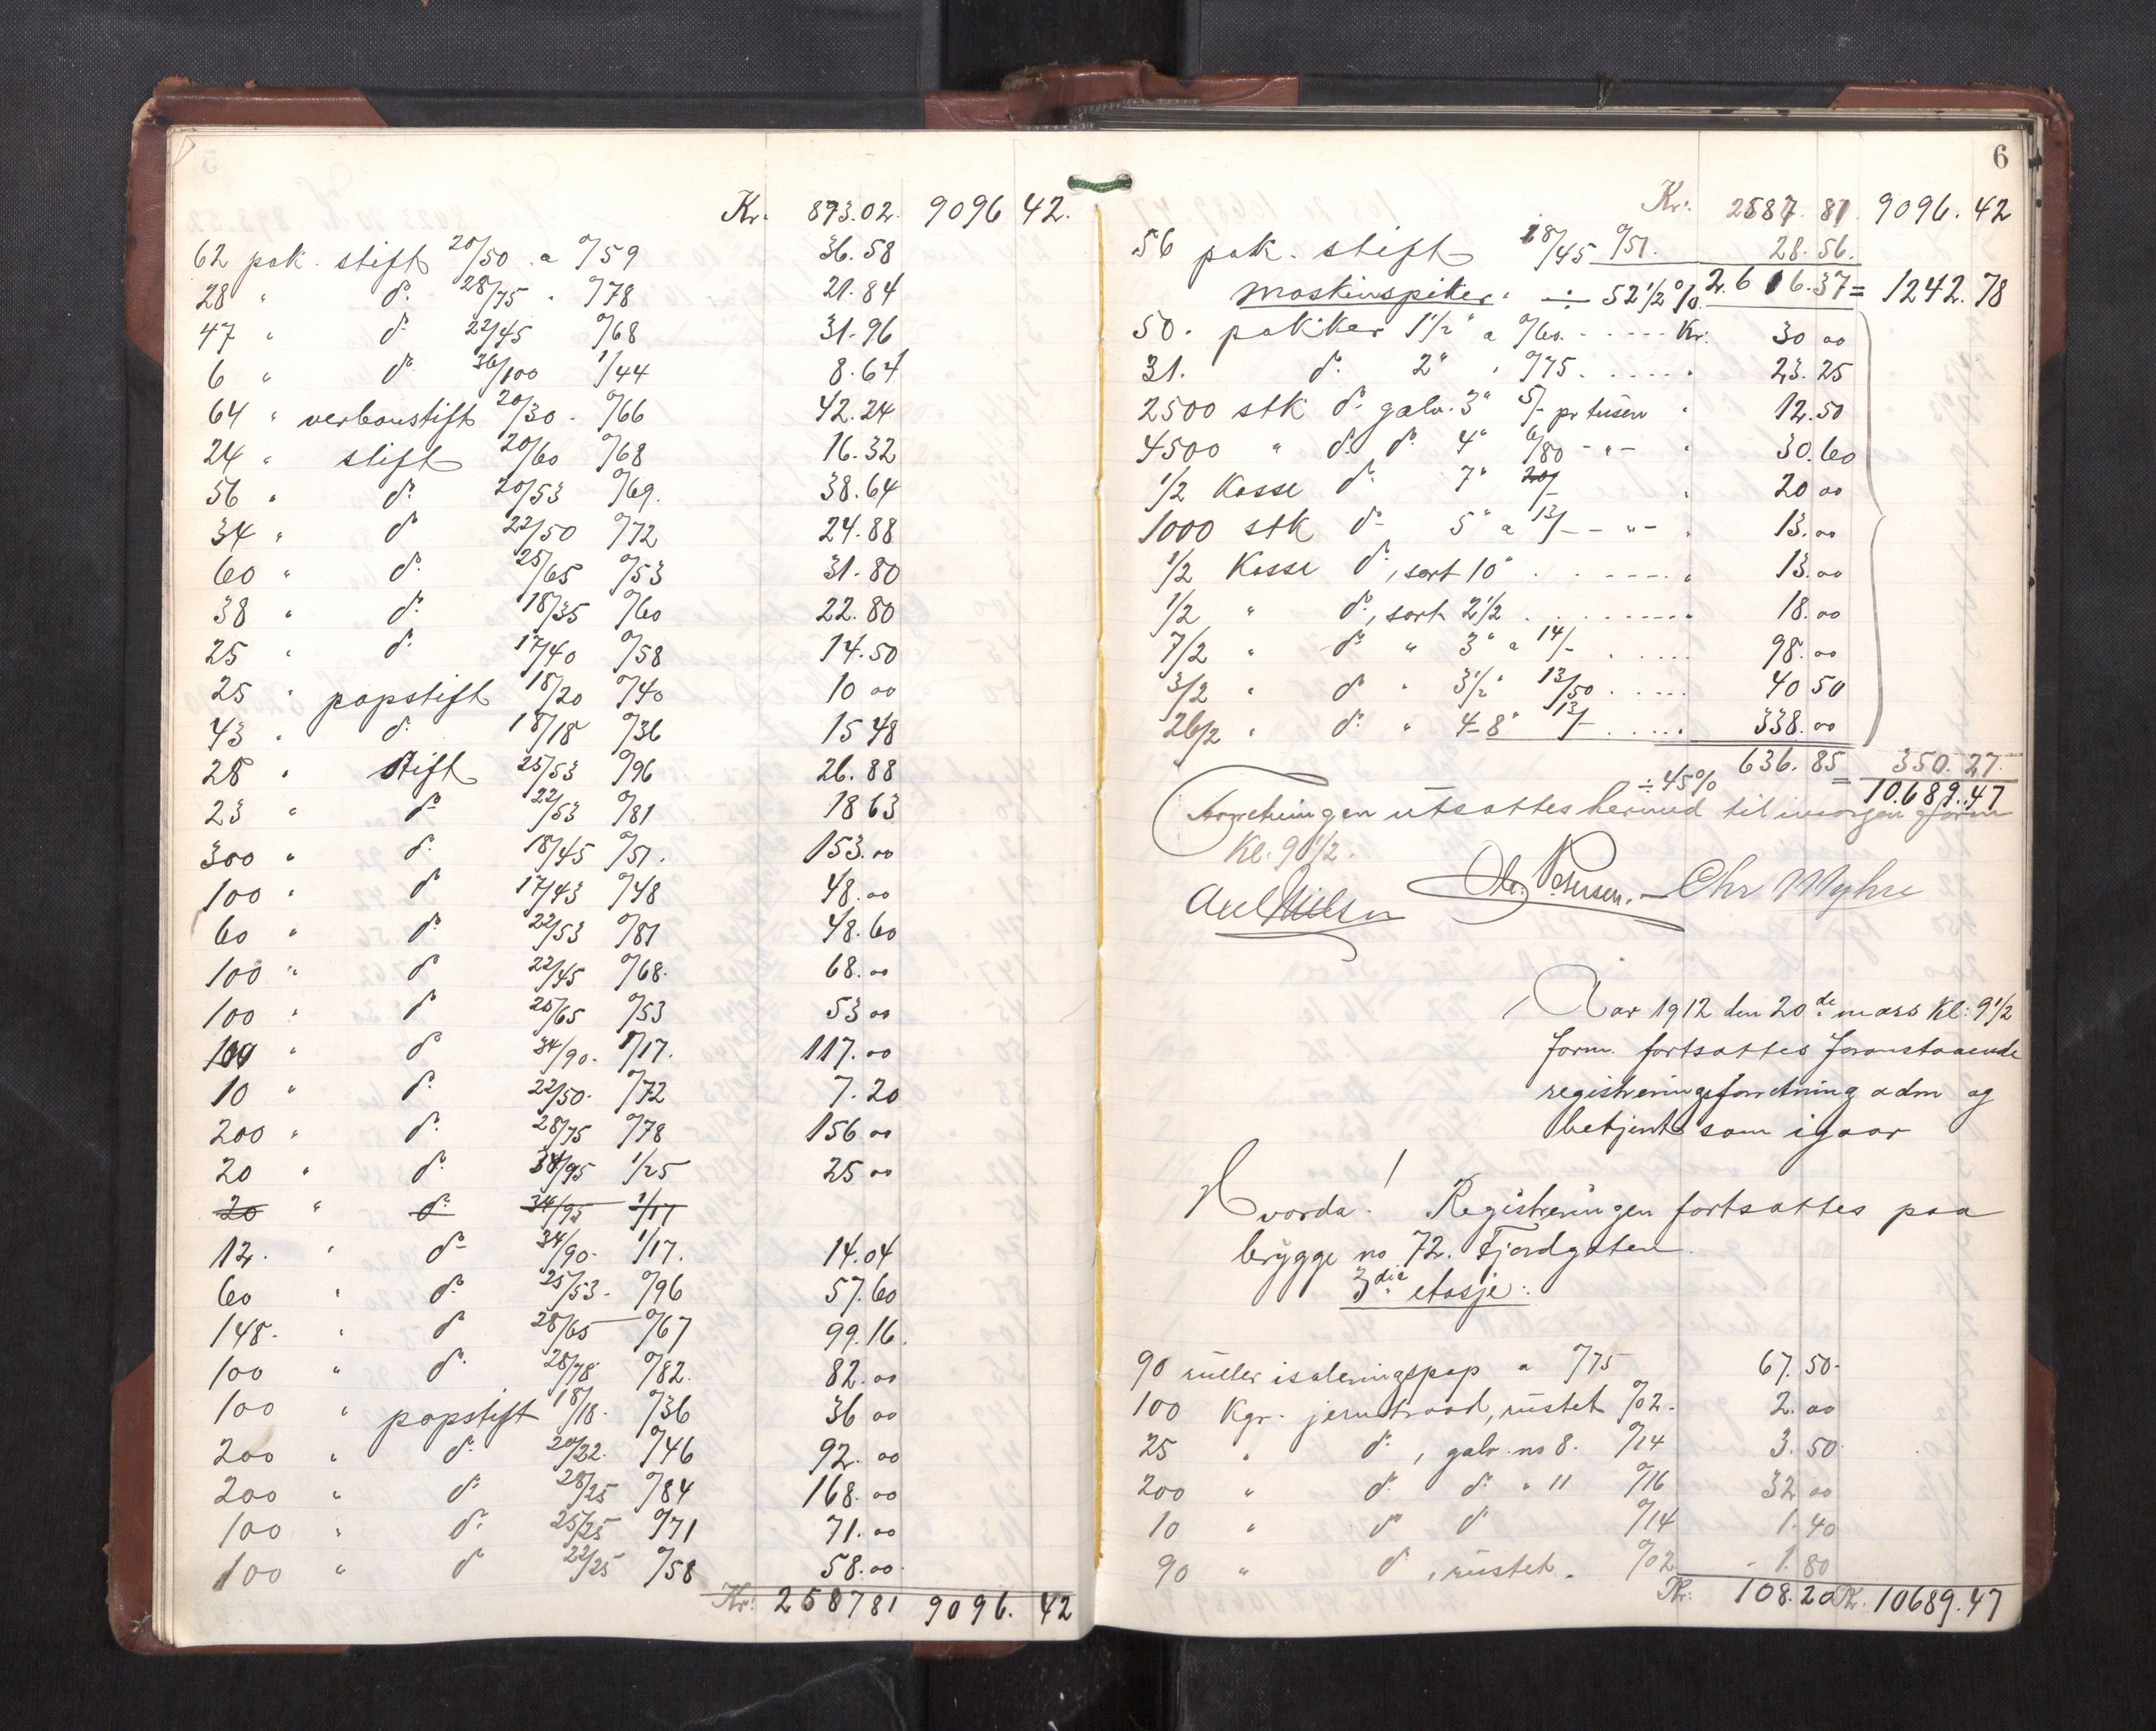 Kr. 893.02. 9096 42.
62 pak. stift 20/50 a 0/59 36.58
28 " do 28/75 " 0/78 21.84
47 " do 22/45 0/68 31.96
6 " do 36/100 1/44 8.64
64 " verbaustift 20/30 - 0/66 42.24
24 " stift 20/60 0/68 16.32
56 " do 20/53 0/69. 38.64
34 " do 22/50 0/72 24.88
60 " do 25/65 0/53 31.80
38 " do 18/35 0/60 22.80
25 " do 17/40 0/58 14.50
25 " papstift 18/20 0/40 10 00
43 " do 18/18 0/36 15 48
28 " stift 25/53 0/96 26.88
23 " do 22/53 0/81 18 63
300 " do 18/45 0/51. 153.00
100 " do 17/43 0/48 48.00
60 " do 22/53 0/81 48.60
100 " do 22/45 0/68. 68.00
100 " do 25/65 0/53 53 00
100 " do 34/90. 1/17. 117.00
10 " do 22/50. 0/72 7.20
200 " do 28/75 0/78 156 00
20 " do 34/95 1/25 25 00
20 " do 34/95 1/17
12. " do 34/90. 1/17. 14.04
60 " do 25/53. 0/96 57.60
148. " do 28/65 0/67 99.16.
100 " do 28/78 0/82. 82.00
100 " papstift 18/18. 0/36 36 00
200 " do 20/22. 0/46 92.00
200 " do 28/25 0/84 168.00
100 " do 25/25 0/71 71.00
100 " do 22/25 0/58 58.00.
Kr. 2587 81 9096. 42
6
Kr. 2587. 81. 9096. 42
56 pak. stift 18/45 0/51. 28.56.
maskinspiker. ÷ 52 1/2 %. 2.616.37 = 1242.78
50. pakker 1 1/2" a 0/60. - - - - Kr. 30 00
31. do 2" " 0/75. - - - - " 23.25
2500 stk do galv. 3" 5/- pr tusen " 12.50
4500 " do do 4" 6/80 - " - " 30.60
1/2 Kasse do 7" 20/- " 20 00
1000 stk do 5" a 13/- - " - " 13.00
1/2 Kasse do, sort 10" . . - - - - " 13.00
1/2 " do, sort 2 1/2 . . . . . . 18.00
7/2 " do " 3" a 14/- . . . . 98.00
3/2 " do " 3 1/2" 13/50 . . . . 40 50
26/2 " do " 4-8" 13/- . . . . 338.00
636.85 350.27.
÷ 45% = 10.689.47
Forretningen utsattes hermed til imorgen form
Kl. 9 1/2.
Chr. Petersen. - Chr Myhre
Aar 1912 den 20de mars Kl: 9 1/2
form. fortsattes foranstaaende
registreringsforretning adm og
betjent som igaar
Hvorda! Registreringen fortsattes paa
brygge no 72. Fjordgaten.
3die etasje:
90 ruller isoleringspap a 0/75 67.50.
100 Kgr. jerntraad, rustet 0/02. 2.00
25 " do, galv. no 8. 0/14 3.50
200 " do do " 11 0/16 32 00
10 " do do 0/14 1.40
90 " do, rustet. 0/02 1.80
Kr. 108.20 Kr. 10689.47